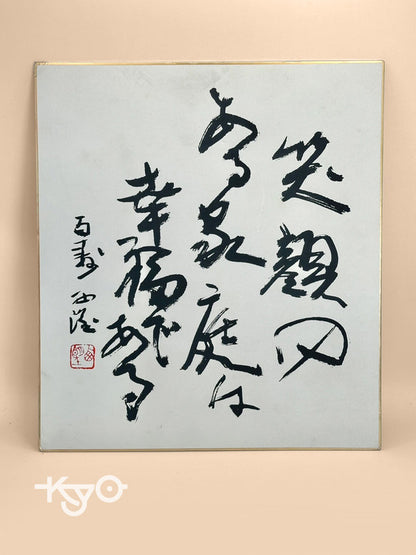 笑顔の
ある家庭は
幸福である
百寿
KYO